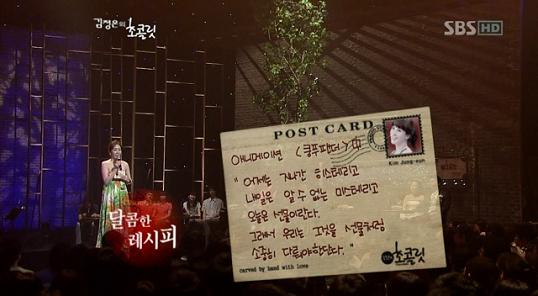 김정은의 초콜릿
SBS HD
POST CARD
Kim Jung-eun
애니메이션 <쿵푸팬더>中
"어제는 지나간 히스테리고
내일은 알 수 없는 미스테리고
오늘은 선물이란다.
그래서 우리는 그것을 선물처럼
소중히 다뤄야한단다."
초콜릿
carved by hand with love
달콤한
레시피